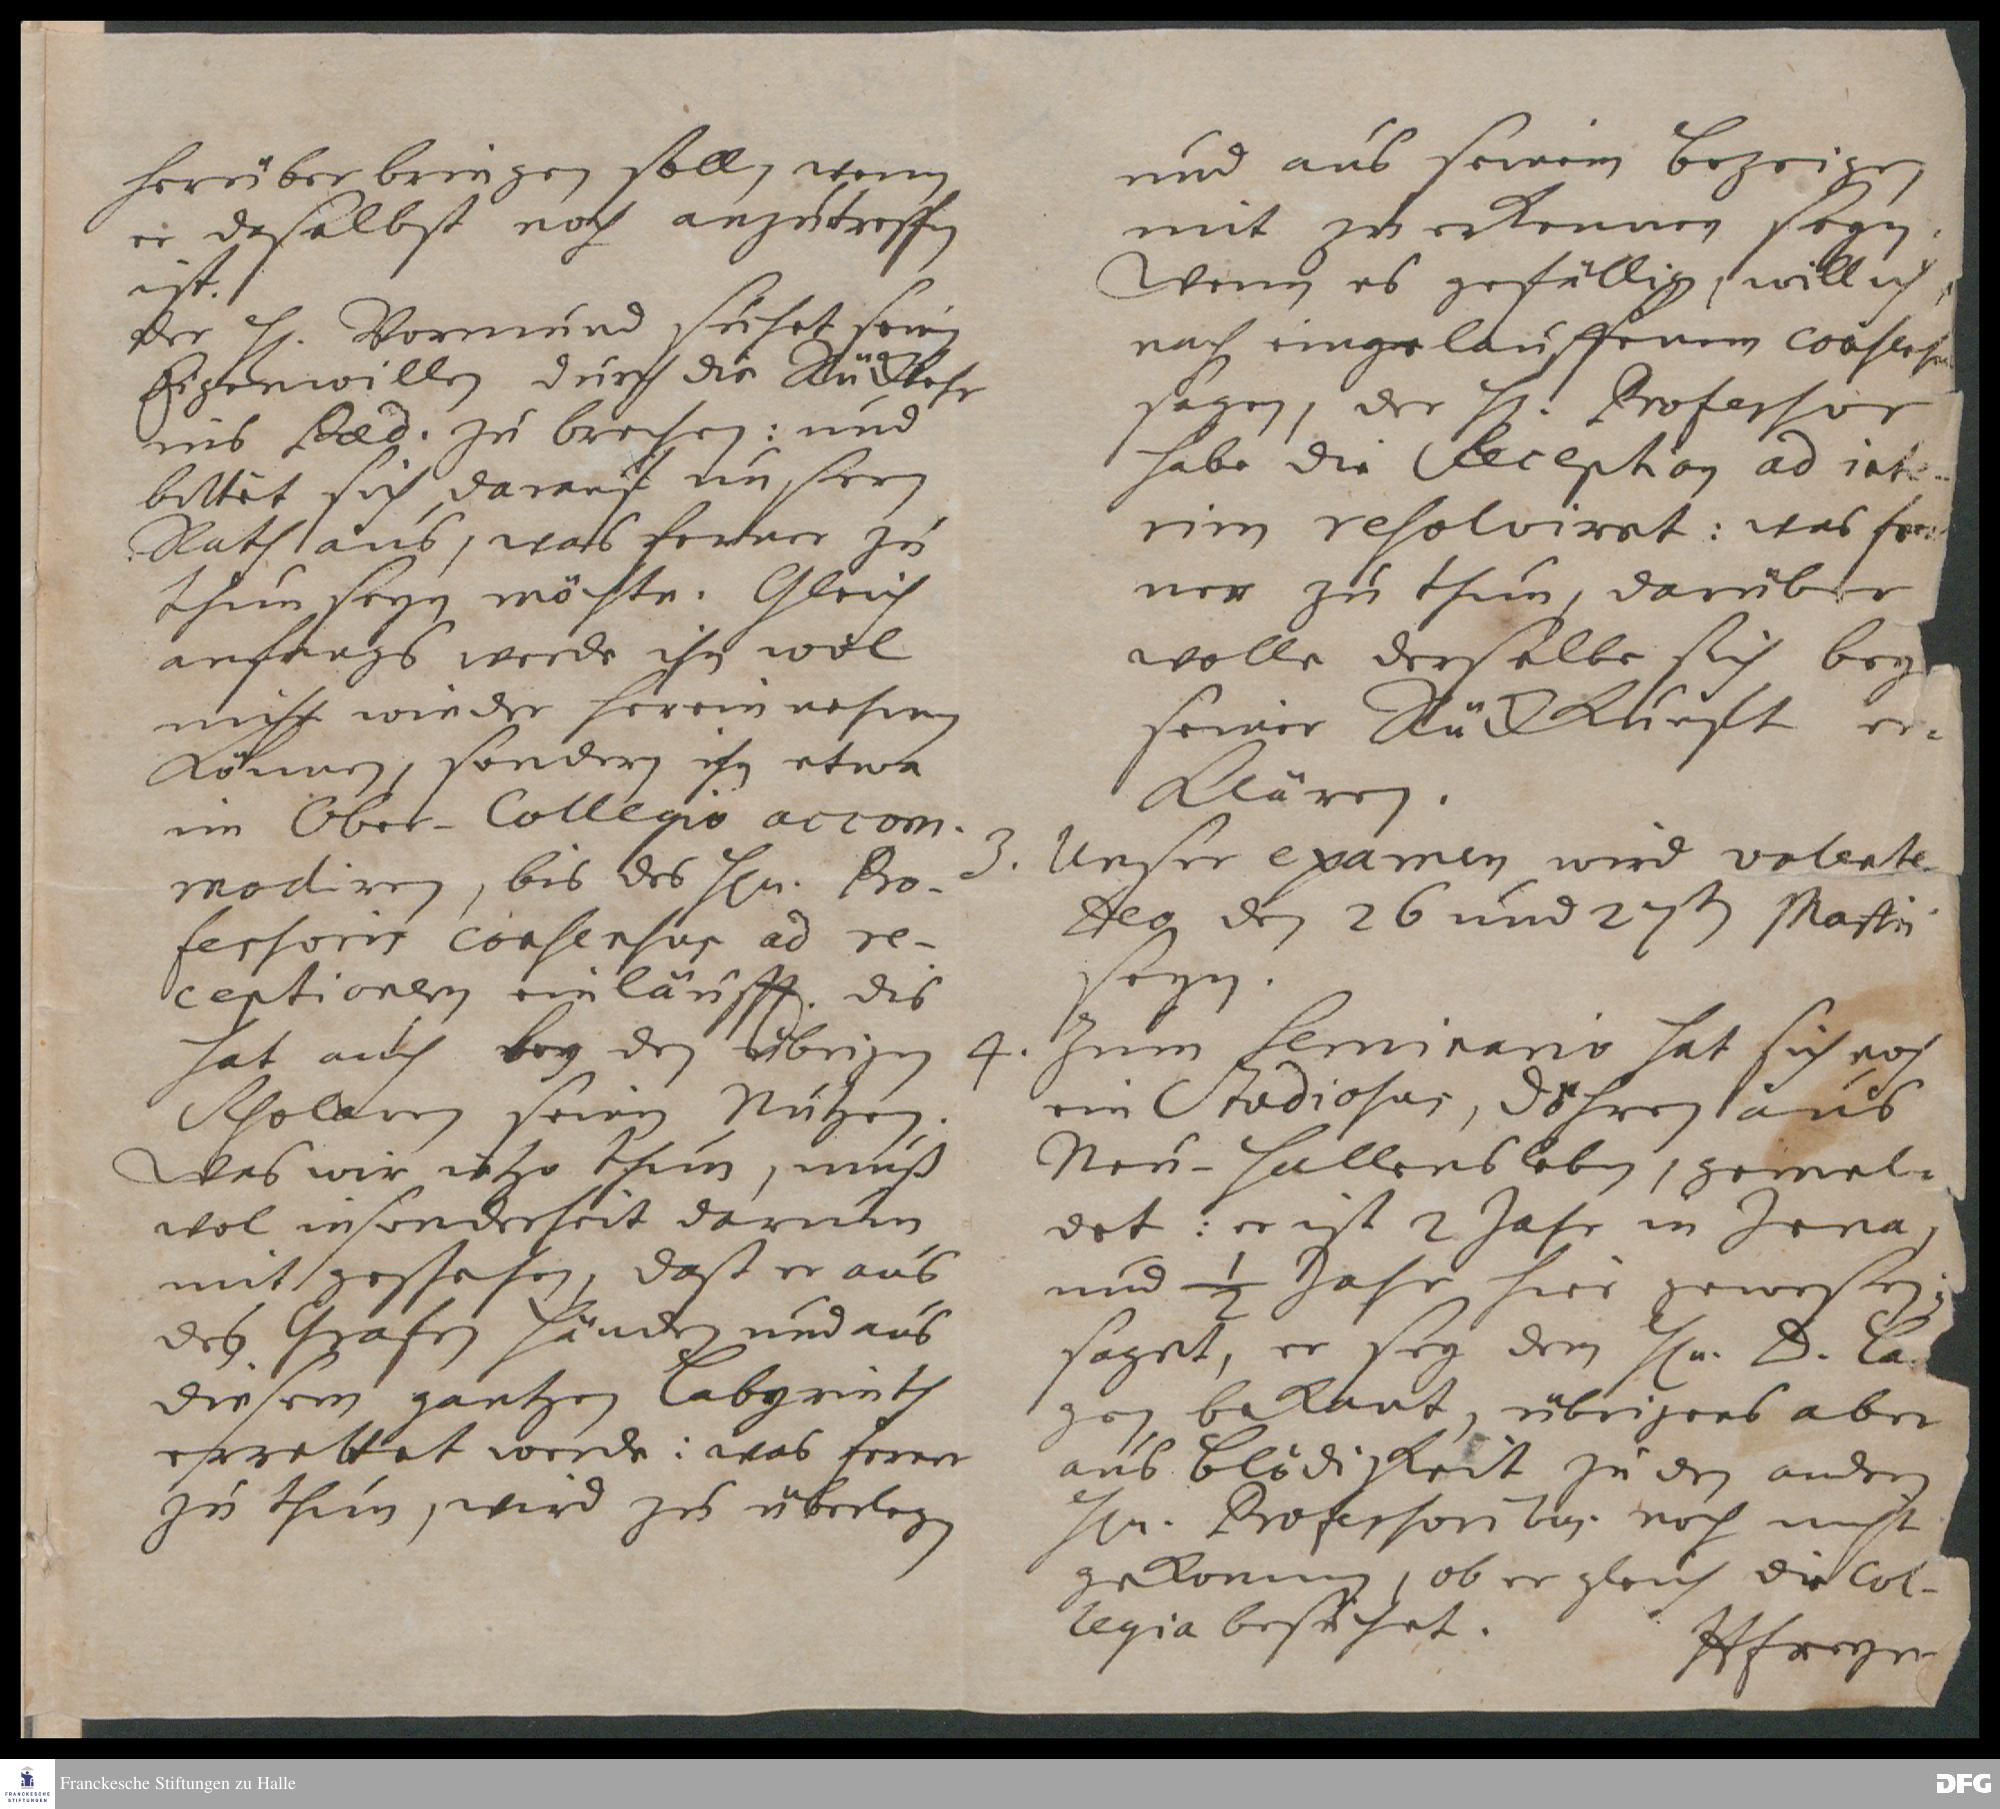 herüber bringen soll, wenn
er daselbst noch anzutreffen
ist.
der H. Vormund suchet seinen
Eigenwillen durch die Rückkehr
ins Paed. zu brechen: und
bittet sich darauf unsern
Rath aus, was ferner zu
thun seyn möchte. Gleich
anfangs werde ihn wol
nicht wieder herein nehmen
können, sondern ihn etwa
im Ober-Collegio accom-
modiren, bis des Hn. Pro-
fessoris consensus ad re-
ceptionem einläufft. dis
hat auch bey den übrigen
Scholaren seinen Nutzen.
Was wir ietzo thun, muß
wol insonderheit darum
mit geschehen, daß er aus
des Grafen Händen und aus
diesem gantzen Labyrinth
errettet werde: was ferner
zu thun, wird zu überlegen
und aus seinem Bezeigen
mit zu erkennen seyn.
Wenn es gefällig, will ich
nach eingelauffenem consensu
sagen, der H. Professor
habe die Reception ad inte-
rim resolviret: was fer-
ner zu thun, darüber
wolle derselbe sich bey
seiner Rückkunft er-
klären.
3. Unser examen wird volente
Deo den 26 und 27sten Martii
seyn.
4. Zum Seminario hat sich noch
ein Studiosus, Döhren aus
Neu-Hallensleben, gemel-
det: er ist 2 Jahr in Jena,
und 1/2 Jahr hier gewesen;
saget, er sey dem Hn. D. La-
gen bekant, übrigens aber
aus Blödigkeit zu den andern
Hn. Professoribus noch nicht
gekommen, ob er gleich die Col-
legia besuchet.
HFreyer
Franckesche Stiftungen zu Halle
FRANCKESCHE
STIFTUNGEN
DFG